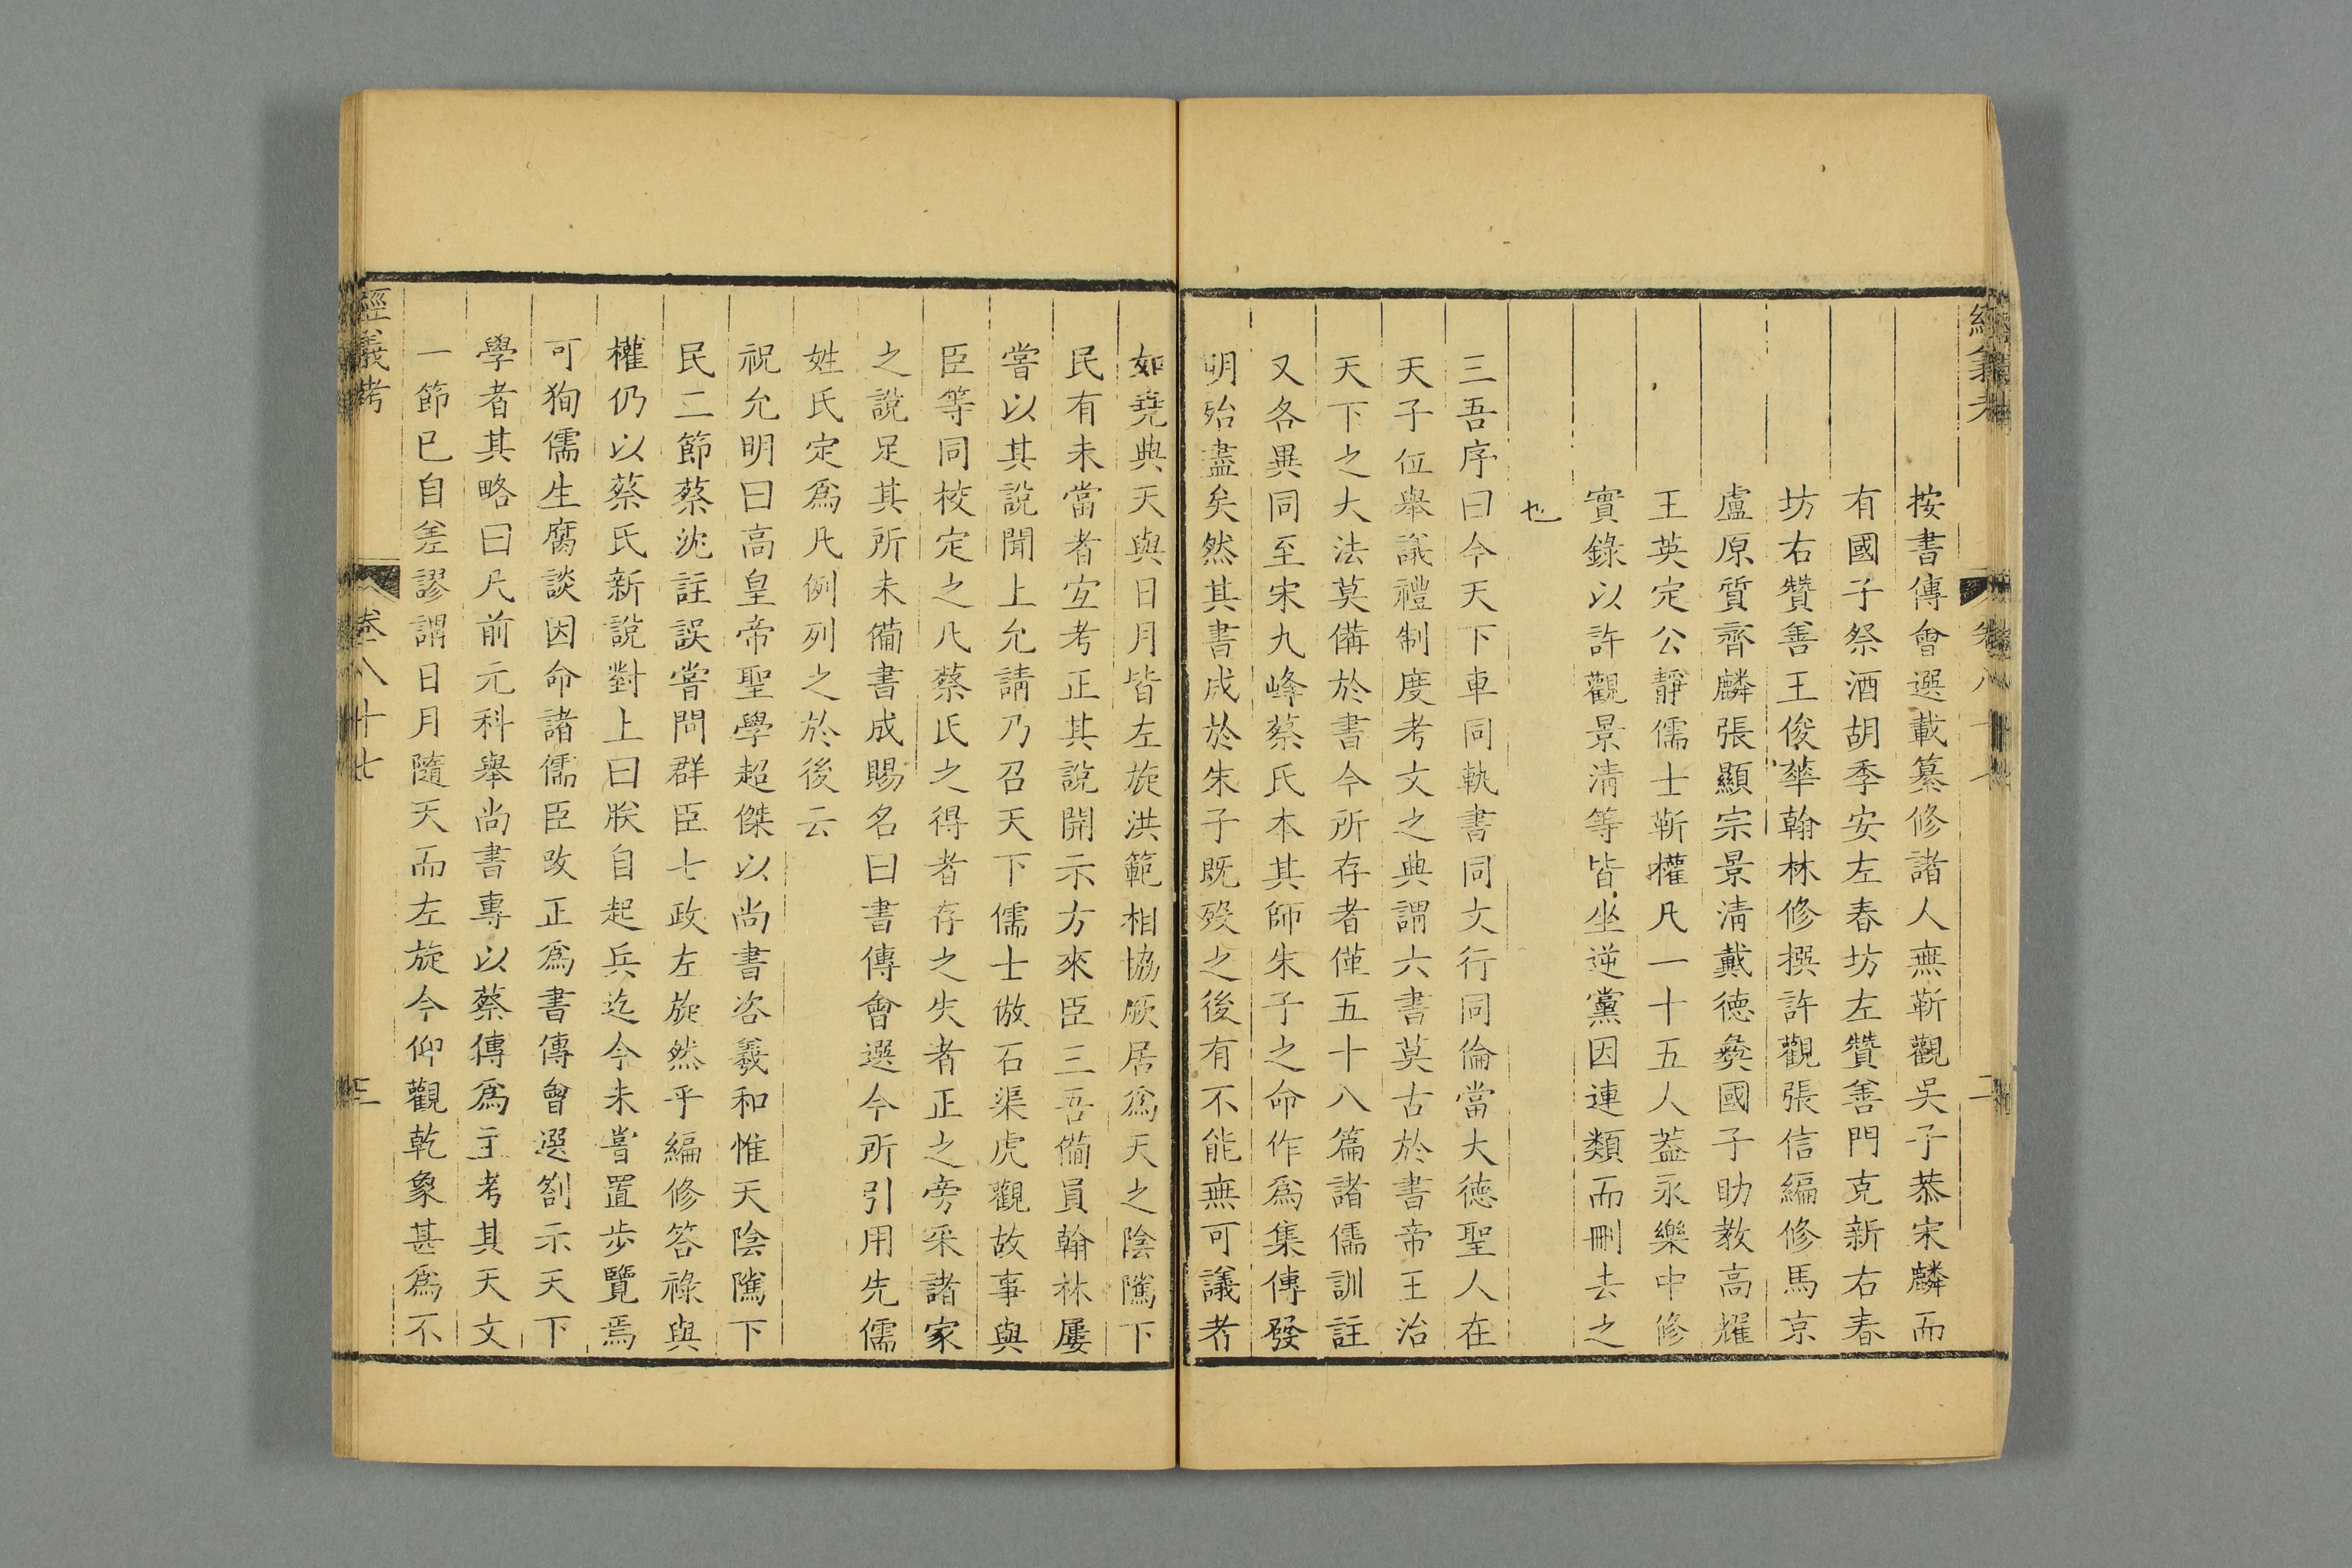 經義考 卷八十七 二
按書傳會選載纂修諸人無靳觀吳子恭宋麟而
有國子祭酒胡季安左春坊左贊善門克新右春
坊右贊善王俊華翰林修撰許觀張信編修馬京
盧原質齊麟張顯宗景清戴德彝國子助教高耀
王英定公靜儒士靳權凡一十五人葢永樂中修
實錄以許觀景清等皆坐逆黨因連類而刪去之
也
三吾序曰今天下車同軌書同文行同倫當大德聖人在
天子位舉議禮制度考文之典謂六書莫古於書帝王治
天下之大法莫備於書今所存者僅五十八篇諸儒訓註
又各異同至宋九峰蔡氏本其師朱子之命作爲集傳發
明殆盡矣然其書成於朱子既歿之後有不能無可議者
如堯典天與日月皆左旋洪範相協厥居爲天之陰隲下
民有未當者宐考正其說開示方來臣三吾備員翰林屢
嘗以其說聞上允請乃召天下儒士倣石渠虎觀故事與
臣等同校定之凡蔡氏之得者存之失者正之旁采諸家
之說足其所未備書成賜名曰書傳會選今所引用先儒
姓氏定爲凡例列之於後云
祝允明曰高皇帝聖學超傑以尚書咨羲和惟天陰隲下
民二節蔡沈註誤嘗問群臣七政左旋然乎編修答祿與
權仍以蔡氏新說對上曰朕自起兵迄今未嘗置步覽焉
可狥儒生腐談因命諸儒臣改正爲書傳會選劄示天下
學者其略曰凡前元科舉尚書專以蔡傳爲主考其天文
一節已自差謬謂日月隨天而左旋今仰觀乾象甚爲不
經義考 卷八十七 三